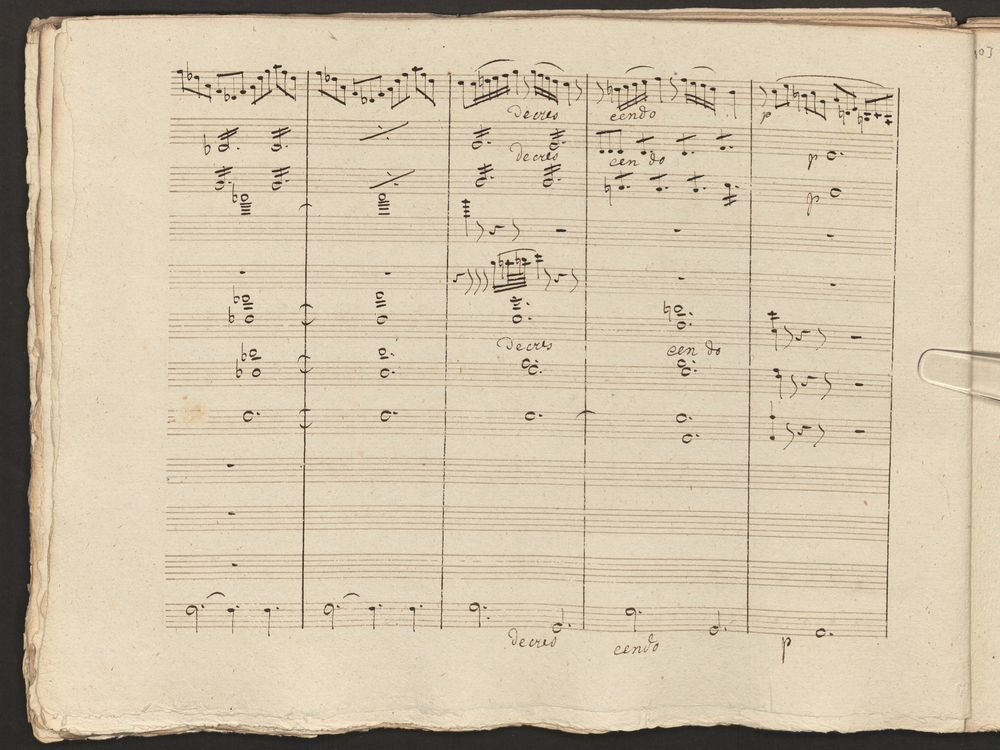 decres cendo
p
decres cen do
p
p
decres cen do
decres cendo
p